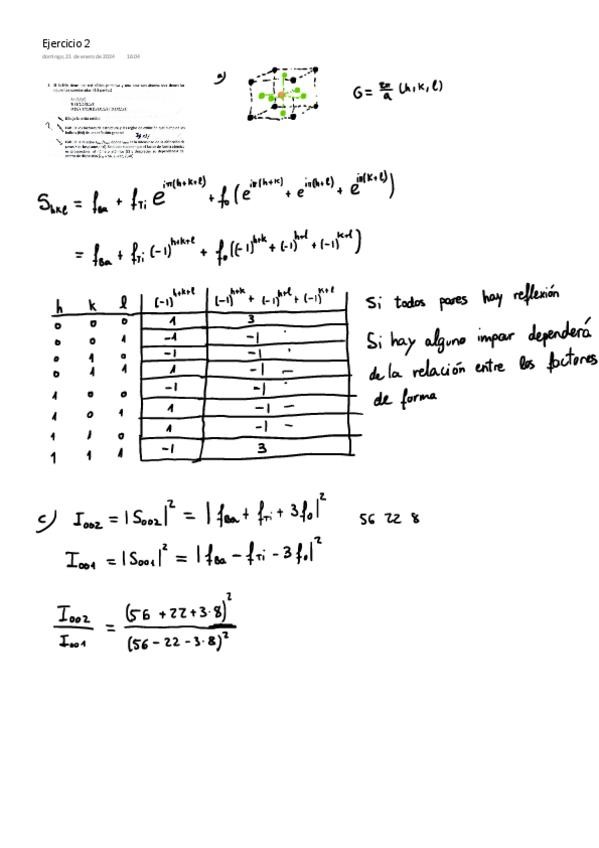 Ejercicio 2
domingo, 21 de enero de 2024 16:04
a)
G = 2π/a (h, k, l)
S_hkl = f_Ba + f_Ti e^{iπ(h+k+l)} + f_o (e^{iπ(h+k)} + e^{iπ(h+l)} + e^{iπ(k+l)})
= f_Ba + f_Ti (-1)^{h+k+l} + f_o ((-1)^{h+k} + (-1)^{h+l} + (-1)^{k+l})
h k l (-1)^{h+k+l} (-1)^{h+k} + (-1)^{h+l} + (-1)^{k+l}
0 0 0 1 3
0 0 1 -1 -1
0 1 0 -1 -1
0 1 1 1 -1 -
1 0 0 -1 -1
1 0 1 1 -1 -
1 1 0 1 -1 -
1 1 1 -1 3
Si todos pares hay reflexión
Si hay alguno impar dependerá
de la relación entre los factores
de forma
c) I_002 = |S_002|^2 = |f_Ba + f_Ti + 3f_o|^2 56 22 8
I_001 = |S_001|^2 = |f_Ba - f_Ti - 3f_o|^2
I_002/I_001 = (56 + 22 + 3·8)^2/(56 - 22 - 3·8)^2